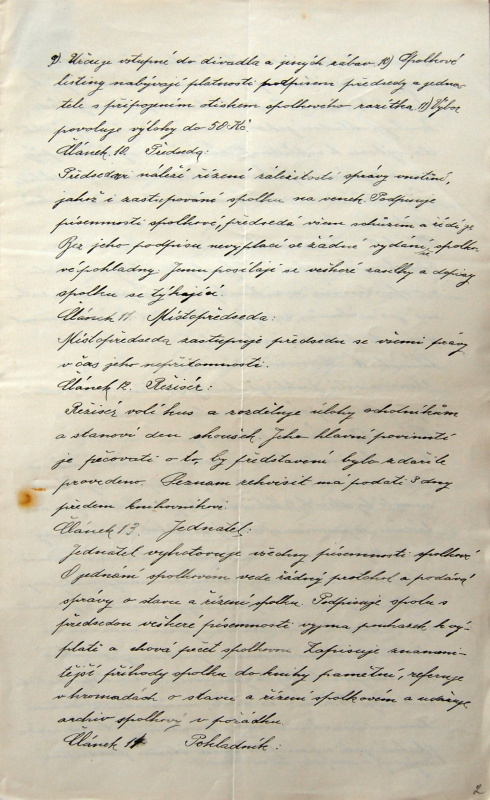 9). Určuje vstupné do divadla a jiných zábav. 10) Spolkové
listiny nabývají platnosti podpisem předsedy a jedna-
tele s připojením otiskem spolkového razítka. 11) Výbor
povoluje výlohy do 50 Kč.
Článek 10. Předseda:
Předsedovi náleží řízení záležitostí správy vnitřní,
jakož i zastupování spolku na venek. Podpisuje
písemnosti spolkové, předsedá všem schůzím a řídí je.
Bez jeho podpisu nevyplácí se žádné vydání ze spolko-
vé pokladny. Jemu posílají se veškeré zásilky a dopisy
spolku se týkající.
Článek 11. Místopředseda:
Místopředseda zastupuje předsedu se všemi právy
v čas jeho nepřítomnosti.
Článek 12. Režisér:
Režisér volí kus a rozděluje úlohy ochotníkům
a stanoví den zkoušek. Jeho hlavní povinností
je pečovati o to, by představení bylo zdařile
provedeno. Seznam rekvisit má podati 3 dny
předem knihovníkovi.
Článek 13. Jednatel:
Jednatel vyhotovuje všechny písemnosti spolkové.
O jednání spolkovém vede řádný protokol a podává
zprávy o stavu a řízení spolku. Podpisuje spolu s
předsedou veškeré písemnosti vyjma poukazek k vý-
platě a chová pečeť spolkovou. Zapisuje znameni-
tější příhody spolku do knihy pamětní, referuje
v hromadách o stavu a řízení spolkovém a udržuje
archiv spolkový v pořádku.
Článek 14 Pokladník:
2